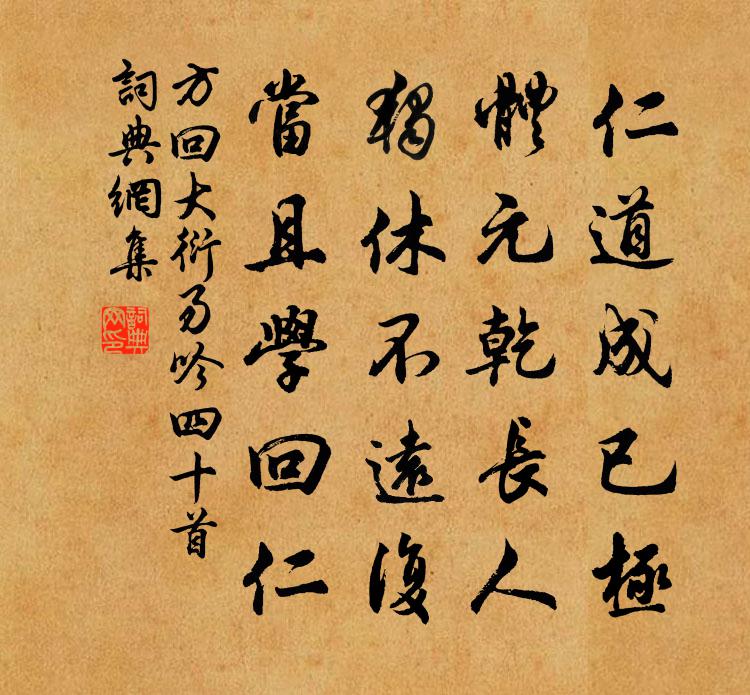 仁道成已極
體元乾長人
獨休不遠復
當且學回仁
方回大衍易吟四十首
詞典網集
詞典
网印